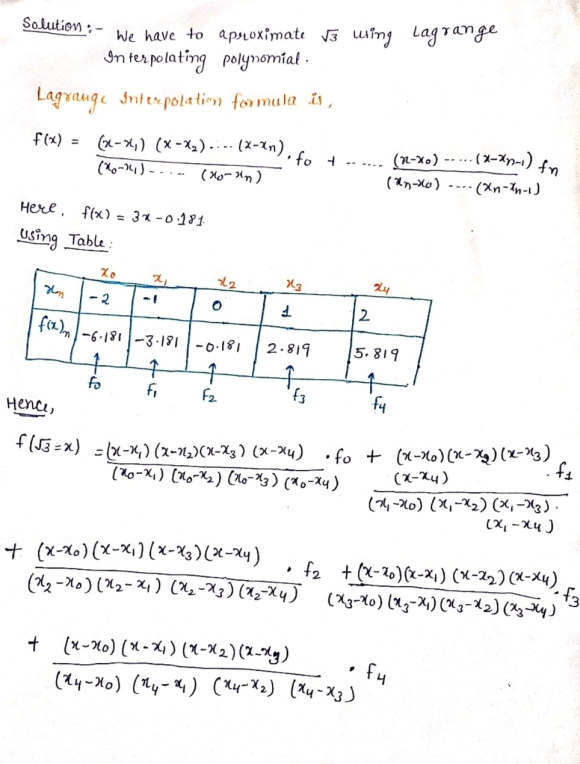 Solution :- We have to aproximate √3 using Lagrange
Interpolating polynomial.
Lagrange Interpolation formula is,
f(x) = (x-x₁) (x-x₂).... (x-xn) / (x₀-x₁)..... (x₀-xn) . f₀ + ...... (x-x₀) ..... (x-xn-1) / (xn-x₀) .... (xn-xn-1) fn
Here, f(x) = 3x-0.181
Using Table:
x₀ x₁ x₂ x₃ x₄
xn -2 -1 0 1 2
f(x)n -6.181 -3.181 -0.181 2.819 5.819
f₀ f₁ f₂ f₃ f₄
Hence,
f(√3=x) = (x-x₁) (x-x₂)(x-x₃) (x-x₄) / (x₀-x₁) (x₀-x₂) (x₀-x₃) (x₀-x₄) . f₀ + (x-x₀) (x-x₂) (x-x₃) (x-x₄) / (x₁-x₀) (x₁-x₂) (x₁-x₃). (x₁-x₄) . f₁
+ (x-x₀) (x-x₁) (x-x₃) (x-x₄) / (x₂-x₀) (x₂-x₁) (x₂-x₃) (x₂-x₄) . f₂ + (x-x₀)(x-x₁) (x-x₂) (x-x₄) / (x₃-x₀) (x₃-x₁) (x₃-x₂) (x₃-x₄) . f₃
+ (x-x₀) (x-x₁) (x-x₂) (x-x₃) / (x₄-x₀) (x₄-x₁) (x₄-x₂) (x₄-x₃) . f₄